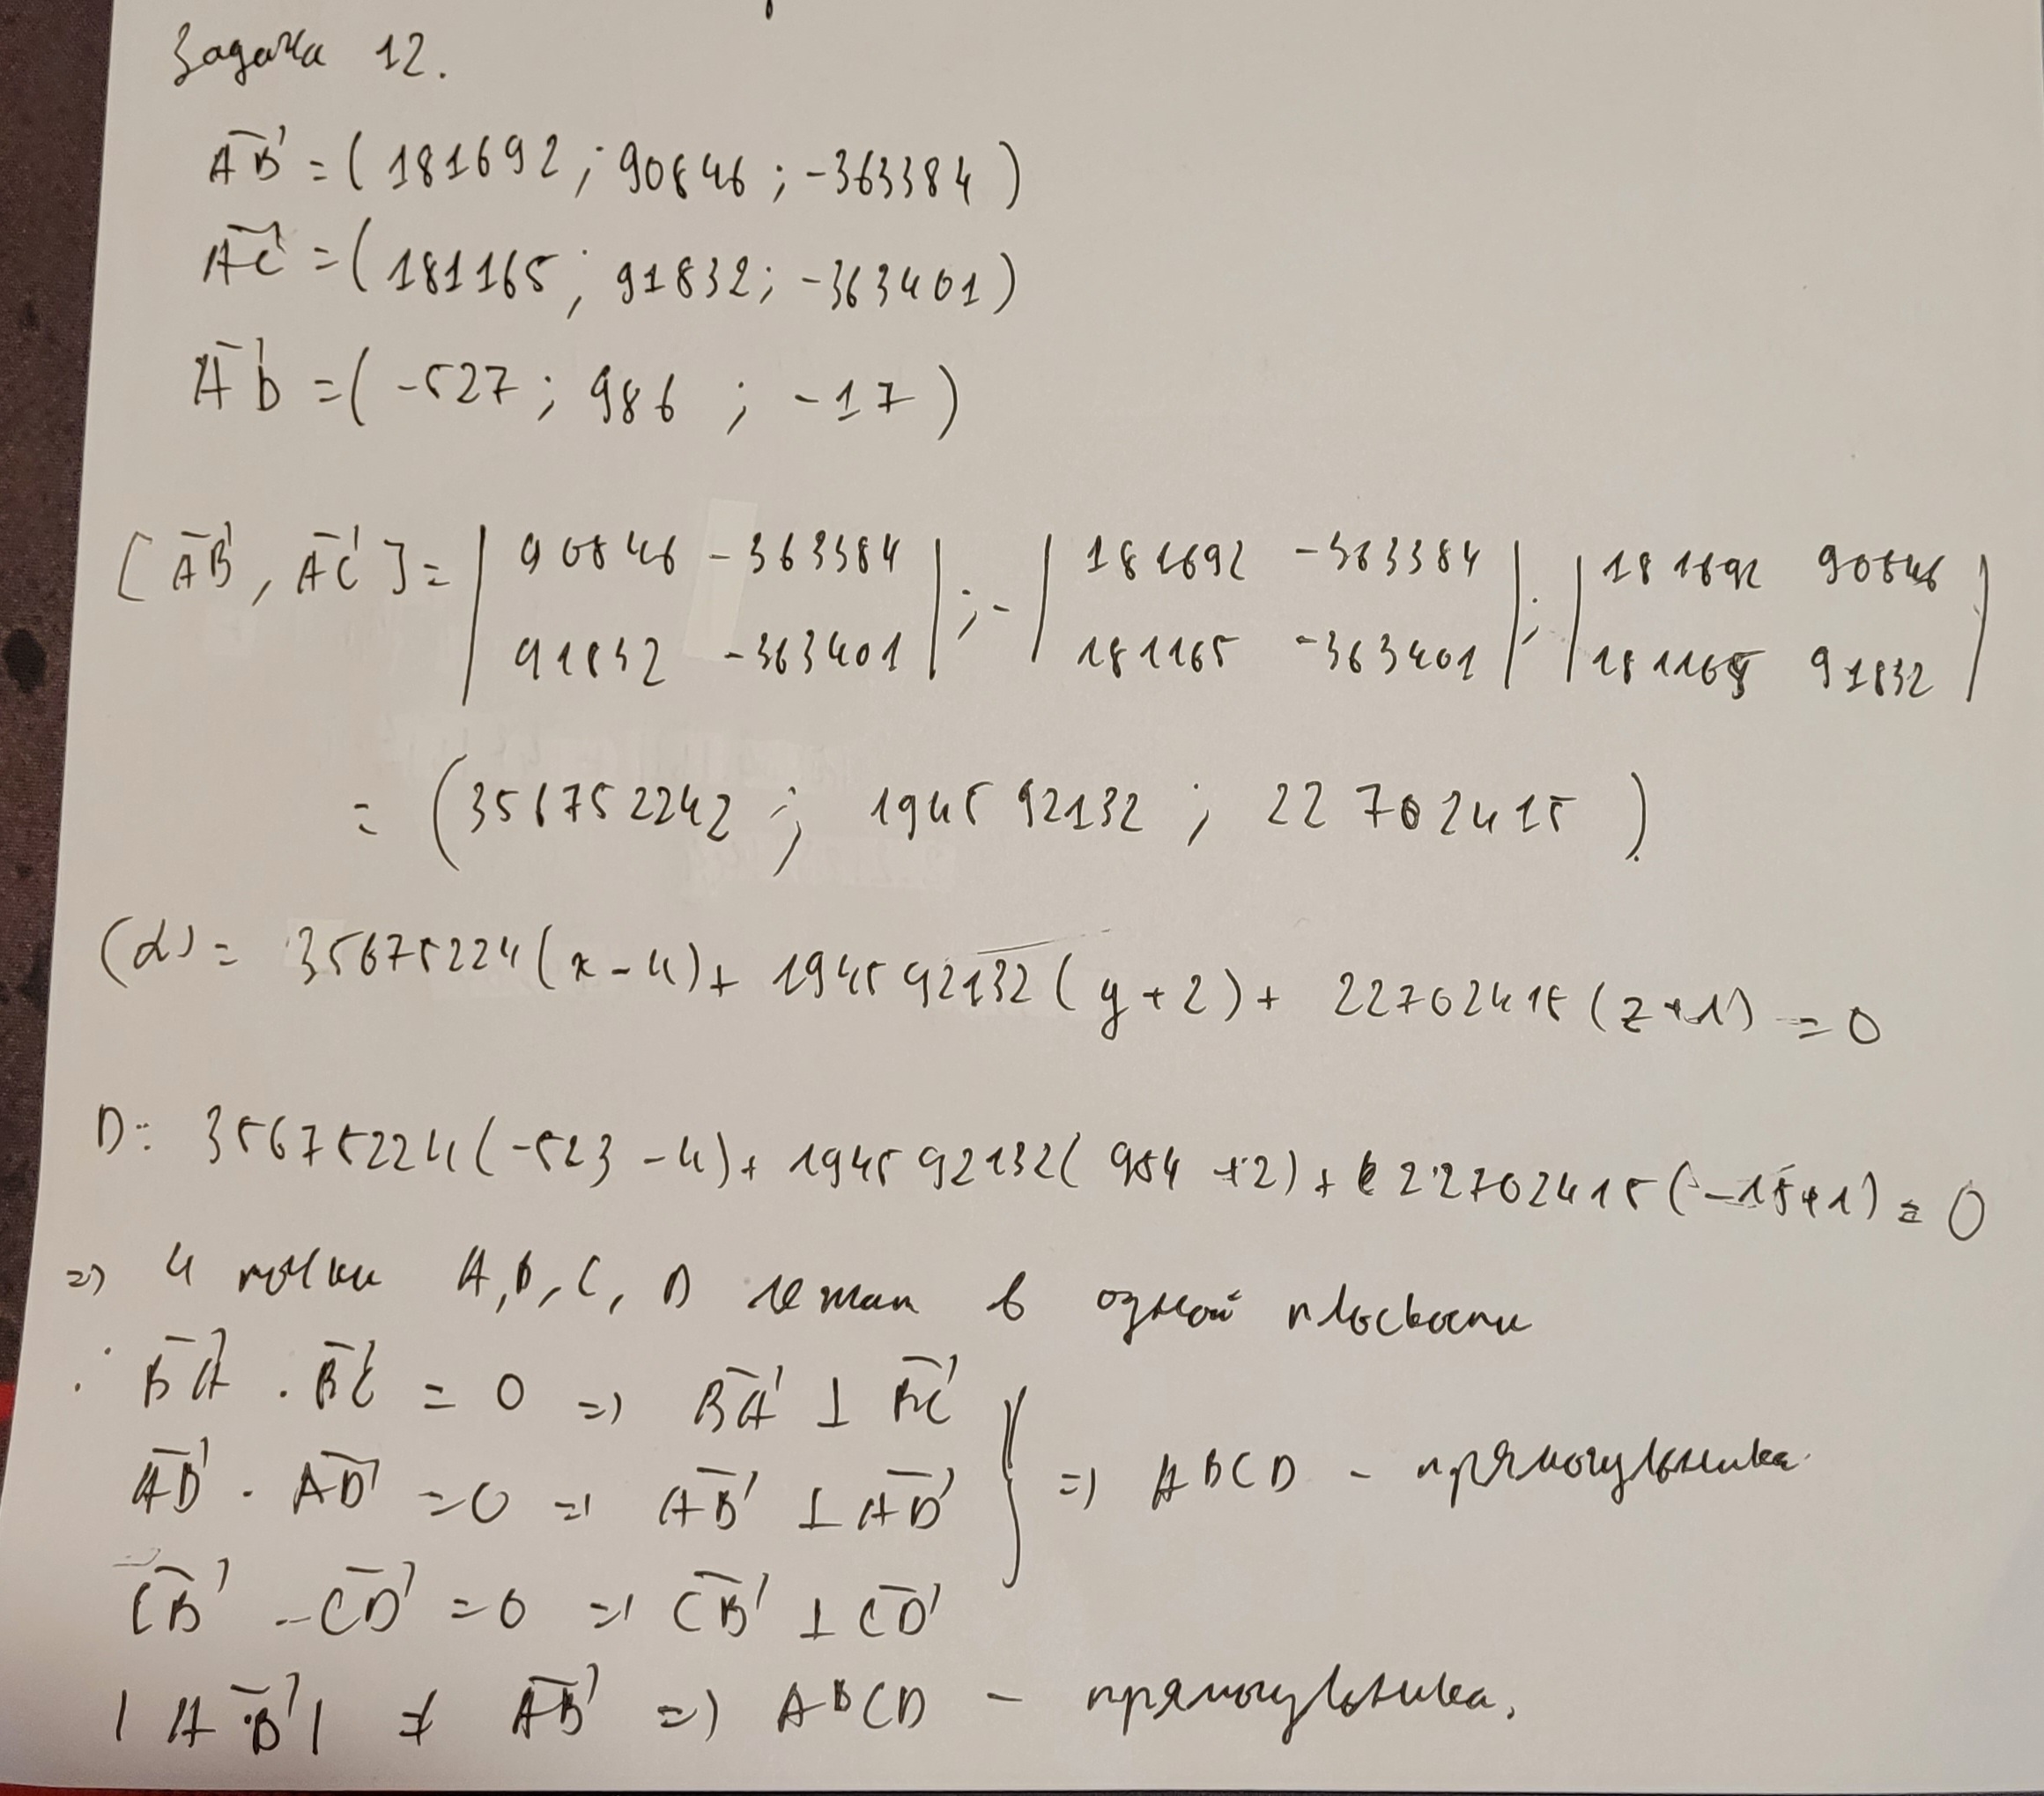 Задача 12.
AB = (181692; 90846; -363384)
AC = (181165; 91832; -363401)
AD = (-527; 986; -17)
[AB, AC] = | 90846 -363384 | ; - | 181692 -363384 | ; | 181692 90846 |
91832 -363401 | 181165 -363401 | 181165 91832 |
= (356752242; 194592132; 22702415)
(α) = 35675224(x-4) + 194592132(y+2) + 22702415(z+1) = 0
D: 35675224(-523-4) + 194592132(984+2) + 22702415(-15+1) = 0
=> 4 точки A, B, C, D лежат в одной плоскости
BA . BC = 0 => BA ⊥ BC
AB . AD = 0 => AB ⊥ AD } => ABCD - прямоугольника.
CB - CD = 0 => CB ⊥ CD
|AB| ≠ AB => ABCD - прямоугольника.